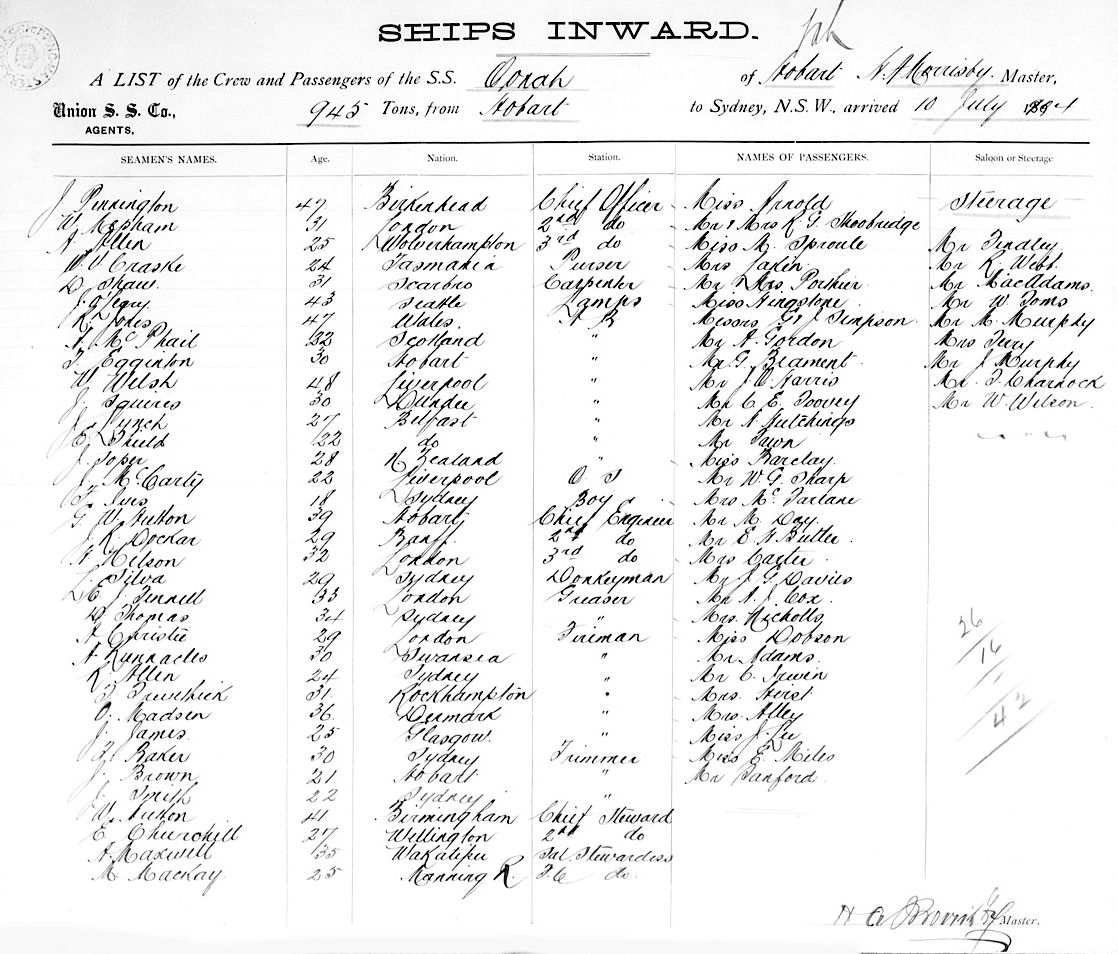 SHIPS INWARD.
A LIST of the Crew and Passengers of the S.S. Oonah of Hobart Master,
Union S. S. Co., 945 Tons, from Hobart to Sydney, N.S.W., arrived 10 July
AGENTS,
SEAMEN'S NAMES. Age. Nation. Station. NAMES OF PASSENGERS. Saloon or Steerage
J Pennington 47 Birkenhead Chief Officer Miss Arnold Steerage
W Mepham 31 London 2nd do Mr & Mrs K. G. Shoobridge
A Allen 25 Wolverhampton 3rd do Miss M. Sproule Mr Findley
W. V. Craske 24 Tasmania Purser Mrs Mr R. Webb
D Shaw 31 Scarbro Carpenter Mr & Mrs Mr MacAdams
J. O'Leary 43 Seattle Lamps Miss Kingstone Mr W Toms
R. Jones 47 Wales. A B Messrs G & J Simpson Mr M. Murphy
A. Mc Phail 32 Scotland " Mr A. Gordon Mrs Terry
T. Egginton 30 Hobart " Mr G. Beament Mr J Murphy
W Welsh 48 Liverpool " Mr J. W. Harris Mr T. Charnock
J Squires 30 Dundee " Mr C E. Toovey Mr W. Wilson
J Lynch 27 Belfast " Mr A Hutchings
E Shield 22 do " Mr Fawn " " "
J. Soper 28 N Zealand " Miss Barclay
J. McCarty 22 Liverpool O S Mr W. G. Sharp
F. Ives 18 Sydney Boy Mrs Mc Farlane
G W Hutton 39 Hobart Chief Engineer Mr M Day
J. K. Dockar 29 Banff 2nd do Mr E H Butler
A Nelson 32 London 3rd do Mrs Carter
L. Silva 29 Sydney Donkeyman Mr J G Davies
E J. Fennell 33 London Greaser Mr A. J. Cox
D Thomas 34 Sydney " Mrs. Nicholls
A Christie 29 London Fireman Miss Dobson
A Runnacles 30 Swansea " Mr Adams
R. Allen 24 Sydney " Mr C. Irwin
31 Rockhampton " Mrs. Hirst
O. Madsen 36 Denmark " Mrs. Alley
J. James 25 Glasgow. " Miss J. Lee
F. Baker 30 Sydney Trimmer Miss E. Miles
J. Brown 21 Hobart " Mr Sanford
J. Smith 22 Sydney "
W. Hutton 41 Birmingham Chief Steward
E Churchill 27 Wellington 2nd do
A Maxwell 35 Wakatipu Sal Stewardess
M. Mackay 25 Manning R. F. C do
26
16
42
Master.